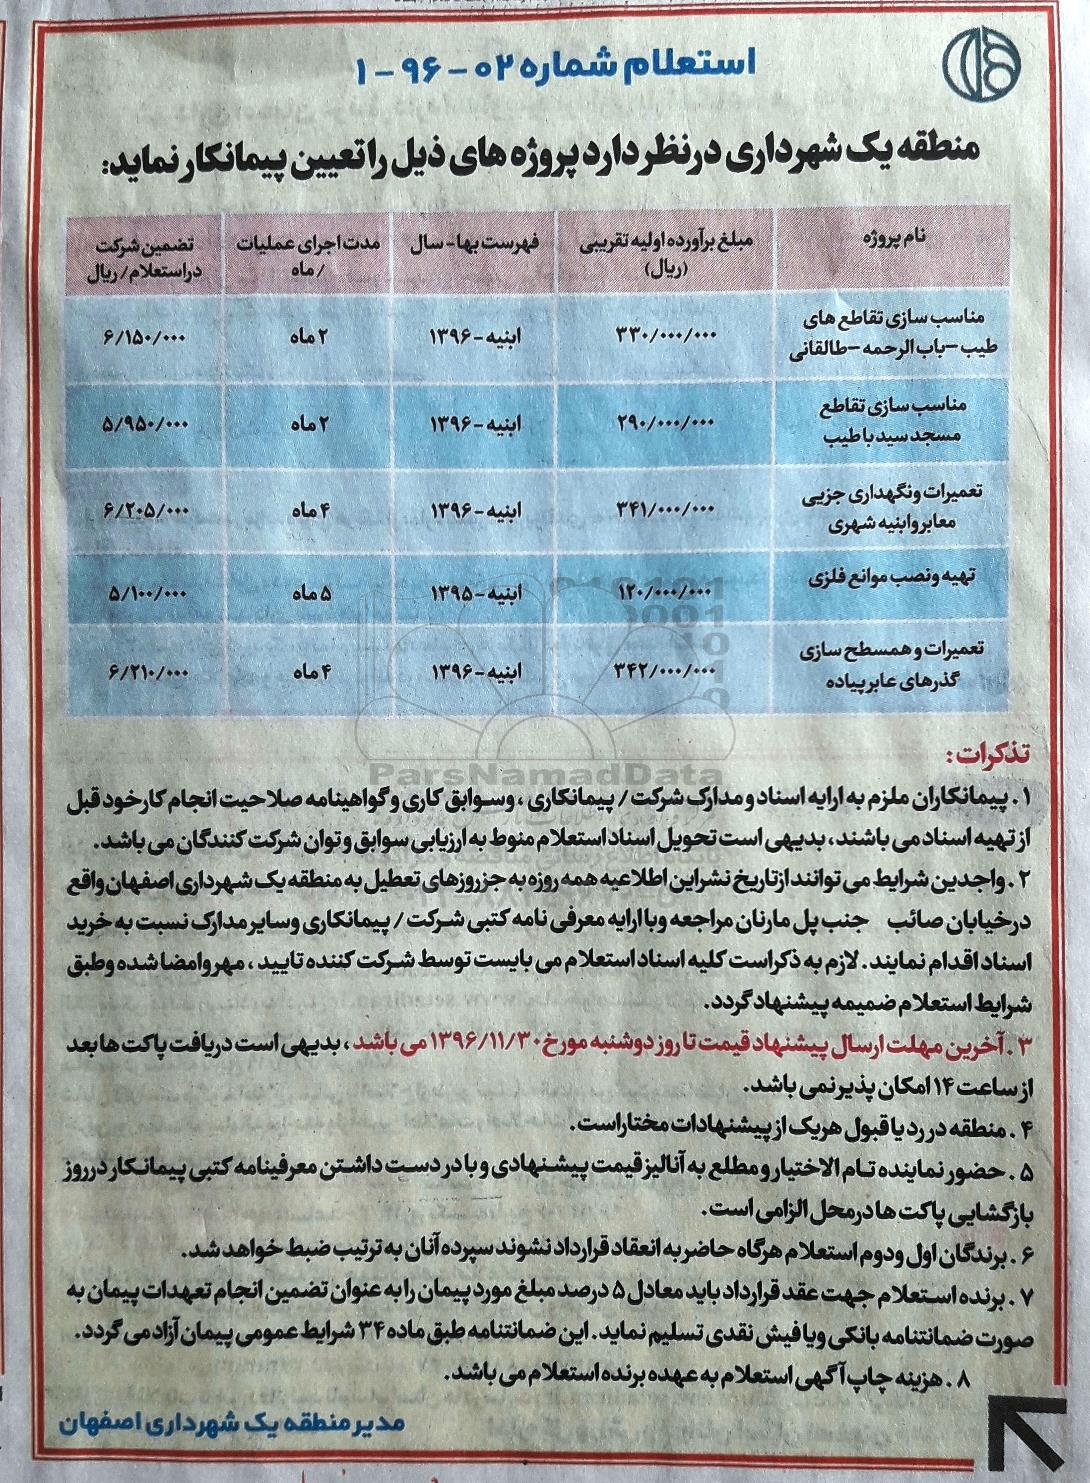 استعلام شماره ۰۲ - ۹۶ - ۱
منطقه یک شهرداری در نظر دارد پروژه های ذیل را تعیین پیمانکار نماید:
نام پروژه | مبلغ برآورده اولیه تقریبی (ریال) | فهرست بها - سال | مدت اجرای عملیات / ماه | تضمین شرکت در استعلام / ریال
مناسب سازی تقاطع های طیب – باب الرحمه – طالقانی | ۳۳۰/۰۰۰/۰۰۰ | ابنیه - ۱۳۹۶ | ۲ ماه | ۶/۱۵۰/۰۰۰
مناسب سازی تقاطع مسجد سید با طیب | ۲۹۰/۰۰۰/۰۰۰ | ابنیه - ۱۳۹۶ | ۲ ماه | ۵/۹۵۰/۰۰۰
تعمیرات و نگهداری جزیی معابر و ابنیه شهری | ۳۴۱/۰۰۰/۰۰۰ | ابنیه - ۱۳۹۶ | ۴ ماه | ۶/۲۰۵/۰۰۰
تهیه و نصب موانع فلزی | ۱۲۰/۰۰۰/۰۰۰ | ابنیه - ۱۳۹۵ | ۵ ماه | ۵/۱۰۰/۰۰۰
تعمیرات و همسطح سازی گذرهای عابر پیاده | ۳۴۲/۰۰۰/۰۰۰ | ابنیه - ۱۳۹۶ | ۴ ماه | ۶/۲۱۰/۰۰۰
تذکرات:
ParsNamadData
۱. پیمانکاران ملزم به ارایه اسناد و مدارک شرکت / پیمانکاری، وسوابق کاری و گواهینامه صلاحیت انجام کار خود قبل
از تهیه اسناد می باشند، بدیهی است تحویل اسناد استعلام منوط به ارزیابی سوابق و توان شرکت کنندگان می باشد.
۲. واجدین شرایط می توانند از تاریخ نشر این اطلاعیه همه روزه به جز روزهای تعطیل به منطقه یک شهرداری اصفهان واقع
در خیابان صائب جنب پل مارنان مراجعه و با ارایه معرفی نامه کتبی شرکت / پیمانکاری وسایر مدارک نسبت به خرید
اسناد اقدام نمایند. لازم به ذکر است کلیه اسناد استعلام می بایست توسط شرکت کننده تایید، مهر و امضا شده و طبق
شرایط استعلام ضمیمه پیشنهاد گردد.
۳. آخرین مهلت ارسال پیشنهاد قیمت تا روز دوشنبه مورخ ۱۳۹۶/۱۱/۳۰ می باشد، بدیهی است دریافت پاکت ها بعد
از ساعت ۱۴ امکان پذیر نمی باشد.
۴. منطقه در رد یا قبول هریک از پیشنهادات مختار است.
۵. حضور نماینده تام الاختیار و مطلع به آنالیز قیمت پیشنهادی و با در دست داشتن معرفینامه کتبی پیمانکار در روز
بازگشایی پاکت ها در محل الزامی است.
۶. برندگان اول و دوم استعلام هرگاه حاضر به انعقاد قرارداد نشوند سپرده آنان به ترتیب ضبط خواهد شد.
۷. برنده استعلام جهت عقد قرارداد باید معادل ۵ درصد مبلغ مورد پیمان را به عنوان تضمین انجام تعهدات پیمان به
صورت ضمانتنامه بانکی و یا فیش نقدی تسلیم نماید. این ضمانتنامه طبق ماده ۳۴ شرایط عمومی پیمان آزاد می گردد.
۸. هزینه چاپ آگهی استعلام به عهده برنده استعلام می باشد.
مدیر منطقه یک شهرداری اصفهان